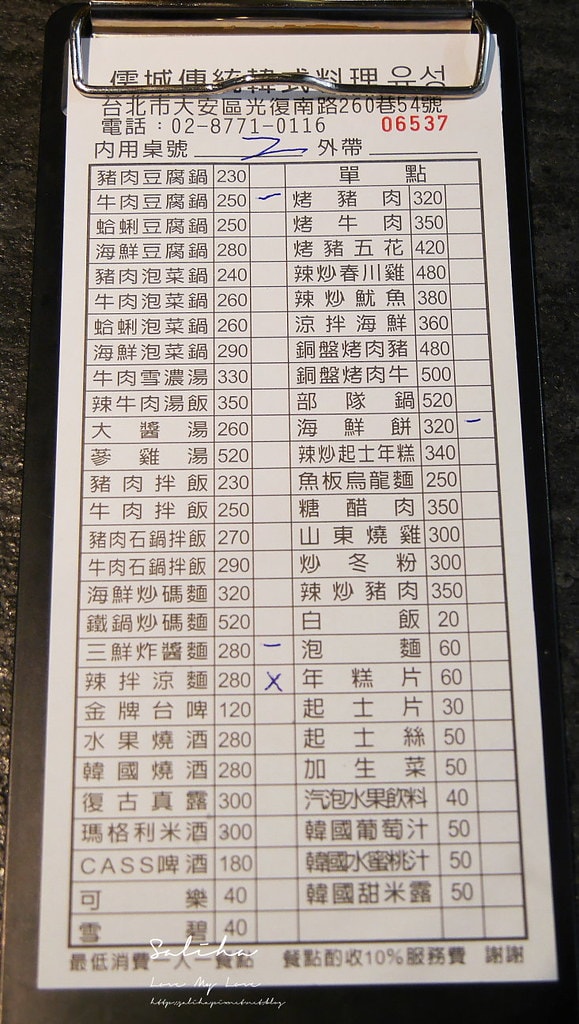 儒城傳統韓式料理 유성
台北市大安區光復南路260巷54號
電話：02-8771-0116 06537
內用桌號 2 外帶
豬肉豆腐鍋 230 單點
牛肉豆腐鍋 250 一 烤豬肉 320
蛤蜊豆腐鍋 250 烤牛肉 350
海鮮豆腐鍋 280 烤豬五花 420
豬肉泡菜鍋 240 辣炒春川雞 480
牛肉泡菜鍋 260 辣炒魷魚 380
蛤蜊泡菜鍋 260 涼拌海鮮 360
海鮮泡菜鍋 290 銅盤烤肉豬 480
牛肉雪濃湯 330 銅盤烤肉牛 500
辣牛肉湯飯 350 部隊鍋 520
大醬湯 260 海鮮餅 320 一
蔘雞湯 520 辣炒起士年糕 340
豬肉拌飯 230 魚板烏龍麵 250
牛肉拌飯 250 糖醋肉 350
豬肉石鍋拌飯 270 山東燒雞 300
牛肉石鍋拌飯 290 炒冬粉 300
海鮮炒碼麵 320 辣炒豬肉 350
鐵鍋炒碼麵 520 白飯 20
三鮮炸醬麵 280 一 泡麵 60
辣拌涼麵 280 X 年糕片 60
金牌台啤 120 起士片 30
水果燒酒 280 起士絲 50
韓國燒酒 280 加生菜 50
復古真露 300 汽泡水果飲料 40
瑪格利米酒 300 韓國葡萄汁 50
CASS啤酒 180 韓國水蜜桃汁 50
可樂 40 韓國甜米露 50
雪碧 40
最低消費一人一餐點 餐點酌收10%服務費 謝謝
Saliha
Love My Love
http://saliha.pixnet.net/blog